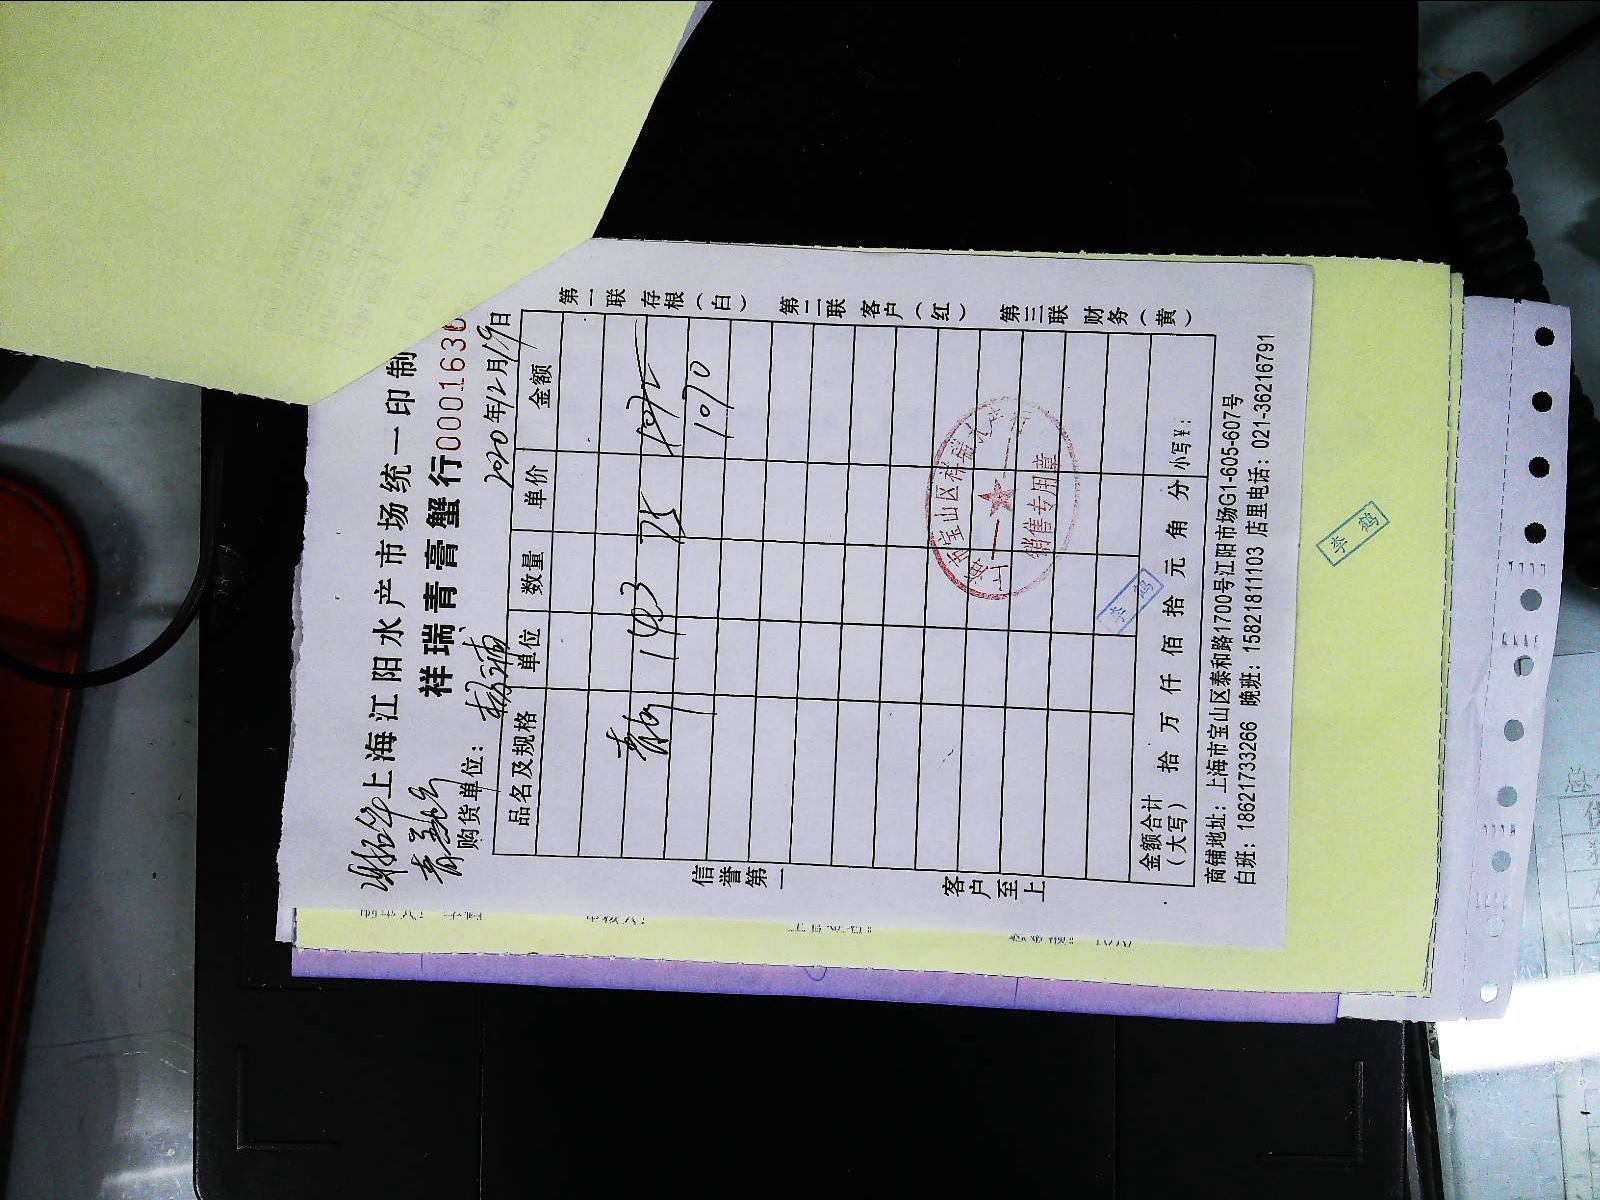 上海江阳水产市场统一印制
祥瑞青膏蟹行 0001636
购货单位： 2020年12月19日
品名及规格 单位 数量 单价 金额
143 75 1072
1070
第一联 存根（白） 第二联 客户（红） 第三联 财务（黄）
信誉第一 客户至上
上海市宝山区祥瑞
销售专用章
李鹤
金额合计（大写） 拾 万 仟 佰 拾 元 角 分 小写￥：
商铺地址：上海市宝山区泰和路1700号江阳市场G1-605-607号
白班：18621733266 晚班：15821811103 店里电话：021-36216791
李鹤